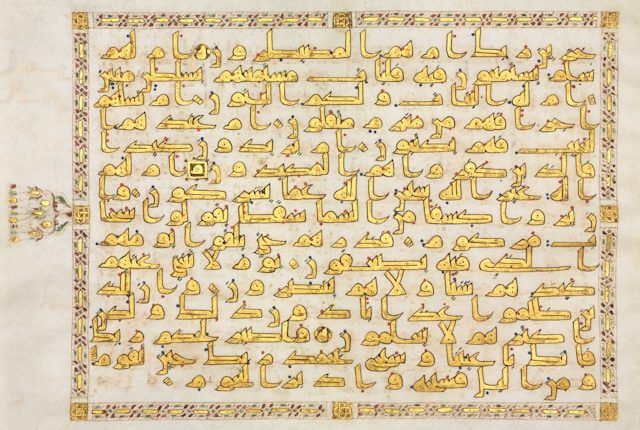 خزائن ربك ام هم المصيطرون ام لهم
سلم يستمعون فيه فليات مستمعهم بسلطن مبين
ام له البنت ولكم البنون ام تسلهم
اجرا فهم من مغرم مثقلون ام عندهم ا
لغيب فهم يكتبون ام يريدون كيدا
فالذين كفروا هم المكيدون ام لهم
اله غير الله سبحن الله عما يشركون وا
ن يروا كسفا من السما ساقطا يقولوا سحا
ب مركوم فذرهم حتى يلقوا يومهم ا
لذي فيه يصعقون يوم لا يغني عنهم
كيدهم شيا ولا هم ينصرون وان للذ
ين ظلموا عذابا دون ذلك ولكن ا
كثرهم لا يعلمون واصبر لحكم ربك
فانك باعيننا وسبح بحمد ربك حين تقوم
ومن اليل فسبحه وادبر النجوم